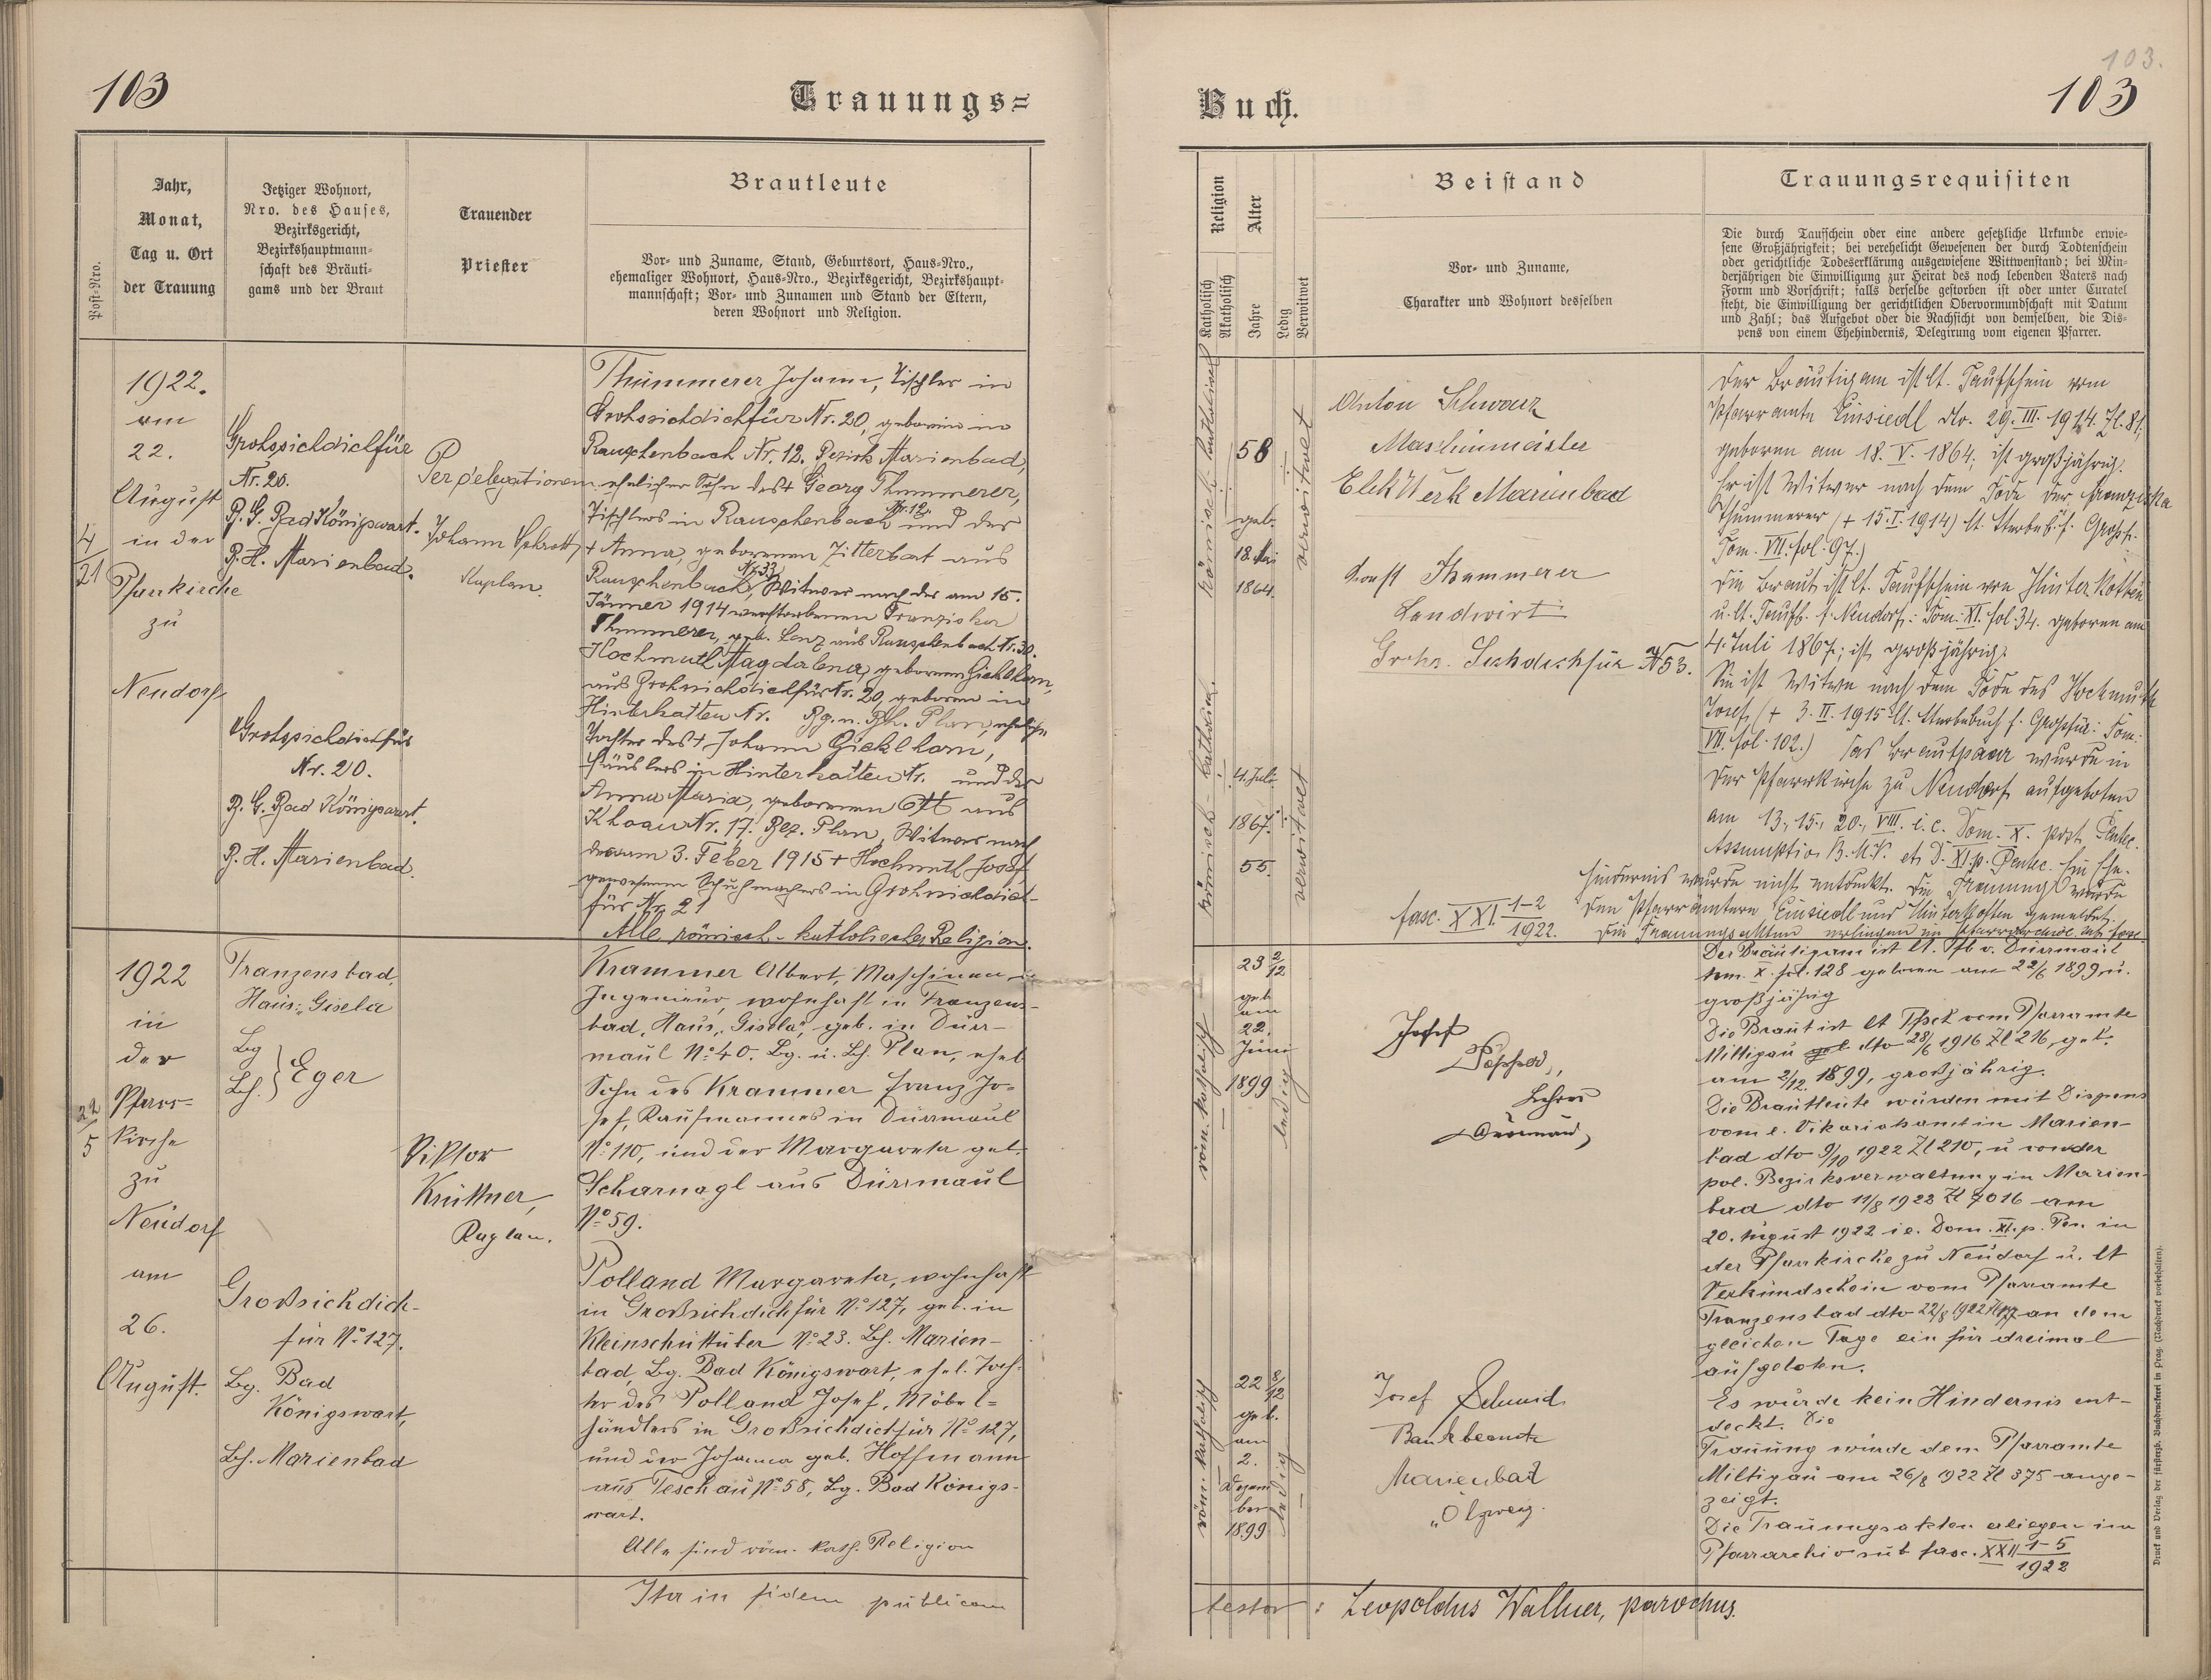 103
Trauungs=
Post-Nro.
Jahr,
Monat,
Tag u. Ort
der Trauung
Jetziger Wohnort,
Nro. des Hauses,
Bezirksgericht,
Bezirkshauptmann-
schaft des Bräuti-
gams und der Braut
Trauender
Priester
Brautleute
Vor- und Zuname, Stand, Geburtsort, Haus-Nro.,
ehemaliger Wohnort, Haus-Nro., Bezirksgericht, Bezirkshaupt-
mannschaft; Vor- und Zunamen und Stand der Eltern,
deren Wohnort und Religion.
4
21
1922.
am
22.
August
in der
Pfarrkirche
zu
Neudorf
Grohssichdichfür
Nr. 20.
B. G. Bad Königswart.
B. H. Marienbad.
Grohssichdichfür
Nr. 20.
B. G. Bad Königswart.
B. H. Marienbad.
Per delegationem
Johann
Kaplan.
Thummerer Johann, Tischler in
Grohssichdichfür Nr. 20, geboren in
Rauschenbach Nr. 12. Bezirk Marienbad,
ehelicher Sohn des † Georg Thummerer,
Tischlers in Rauschenbach Nr. 12. und der
† Anna, geborenen Zitterbart aus
Rauschenbach Nr. 33, Witwer nach der am 15.
Jänner 1914 verstorbenen Franziska
Thummerer, geb. Lenz aus Rauschenbach Nr. 30.
Hochmuth Magdalena, geborene Gicklhorn,
aus Grohssichdichfür Nr. 20, geboren in
Hinterkotten Nr. Bg. u. Bh. Plan, eheliche
Tochter des † Johann Gicklhorn,
Häuslers in Hinterkotten Nr. und der
Anna Maria, geborenen Ott aus
Khoau Nr. 17. Bez. Plan, Witwe nach
dem am 3. Feber 1915 † Hochmuth Josef
gewesenen Schuhmachers in Grohssichdich-
für Nr. 21
Alle römisch-katholischer Religion.
22
5
1922
in
der
Pfarr-
kirche
zu
Neudorf
am
26.
August.
Franzensbad,
Haus: „Gisela
Bg
Bh. } Eger
Großsichdich-
für No 127.
Bg. Bad
Königswart,
Bh. Marienbad
Viktor
Krüttner,
Kaplan.
Krammer Albert, Maschinen-
Ingenieur, wohnhaft in Franzens-
bad, Haus „Gisela“, geb. in Dürr-
maul No 40. Bg. u. Bh. Plan, ehel
Sohn des Krammer Franz Jo-
sef, Kaufmannes in Dürrmaul
No 110, und der Margareta geb.
Scharnagl aus Dürrmaul
No 59.
Polland Margareta, wohnhaft
in Großsichdichfür No 127, geb. in
Kleinschüttüber No 23. Bh. Marien-
bad, Bg. Bad Königswart, ehel. Toch-
ter des Polland Josef, Möbel-
händlers in Großsichdichfür No 127,
und der Johanna geb. Hoffmann
aus Teschau No 58, Bg. Bad Königs-
wart.
Alle sind röm. kath. Religion
Ita in fidem publicam
103.
103
Buch.
Religion
Katholisch
Akatholisch
Alter
Jahre
Ledig
Verwitwet
Beistand
Vor- und Zuname,
Charakter und Wohnort desselben
Trauungsrequisiten
Die durch Taufschein oder eine andere gesetzliche Urkunde erwie-
sene Großjährigkeit; bei verehelicht Gewesenen der durch Todtenschein
oder gerichtliche Todeserklärung ausgewiesene Wittwenstand; bei Min-
derjährigen die Einwilligung zur Heirat des noch lebenden Vaters nach
Form und Vorschrift; falls derselbe gestorben ist oder unter Curatel
steht, die Einwilligung der gerichtlichen Obervormundschaft mit Datum
und Zahl; das Aufgebot oder die Nachsicht von demselben, die Dis-
pens von einem Ehehindernis, Delegirung vom eigenen Pfarrer.
Römisch-katholisch
58
geb.
18. Mai
1864.
verwitwet
römisch-katholisch.
4. Juli
1867.
55.
verwitwet
Anton Schwarz
Maschinmeister
Elek Werk Marienbad
Ernst Thummerer
Landwirt
Grohs. Sichdichfür N 53.
Der Bräutigam ist lt. Taufschein vom
Pfarramte Einsiedl dto. 29. III. 1914. Zl. 81,
geboren am 18. V. 1864, ist großjährig.
Er ist Witwer nach dem Tode der Franziska
Thummerer († 15. I. 1914) lt. Sterbeb. f. Grossf.
Tom. VII. fol. 97.)
Die Braut ist lt. Taufschein von Hinterkotten
u. lt. Taufb. f. Neudorf: Tom. XI. fol. 34. geboren am
4. Juli 1867; ist großjährig.
Sie ist Witwe nach dem Tode des Hochmuth
Josef, († 3. II. 1915 lt. Sterbebuch f. Grossfür: Tom.
VII. fol. 102.) Das Brautpaar wurde in
der Pfarrkirche zu Neudorf aufgeboten
am 13., 15., 20., VIII. i. e. Dom. X. post Pentec.
Assumptio B. M. V. et D. XI. p. Pentec. Ein Ehe-
hindernis wurde nicht entdeckt. Die Trauung wurde
den Pfarrämtern Einsiedl und Hinterkotten gemeldet.
Die Trauungsakten erliegen im Pfarrarchive sub fasc.
fasc. XXI. 1-2
1922.
röm. katholisch
23 2/12
geb
am
22.
Juni
1899
ledig
röm. katholisch
22 8/12
geb.
am
2.
Dezem
ber
1899
ledig
Josef
Lehrer
Dürrmaul,
Josef Schmid
Bankbeamte
Marienbad
„Ölzweig.
Der Bräutigam ist lt. Tfb v. Dürrmaul
tom. X. fol. 128 geboren am 22/6 1899 u.
großjährig
Die Braut ist lt Tfsch vom Pfarramte
Miltigau geb dto 28/6 1916 Zl 216, geb.
am 2/12 1899, großjährig.
Die Brautleute wurden mit Dispens
vom e. Vikariatsamt in Marien-
bad dto 9/10 1922 Zl 210, u von der
pol. Bezirksverwaltung in Marien-
bad dto 11/8 1922 Zl 7016 am
20. August 1922 i e. Dom. XI. p. Pen. in
der Pfarrkirche zu Neudorf u. lt
Verkündschein vom Pfarramte
Franzensbad dto 22/8 1922 an dem
gleichen Tage ein für dreimal
aufgeboten.
Es wurde kein Hindernis ent-
deckt. Die
Trauung wurde dem Pfarramte
Miltigau am 26/8 1922 Zl 375 ange-
zeigt.
Die Trauungsakten erliegen im
Pfarrarchiv sub fasc. XXII 1-5
1922
testor : Leopoldus Wallner, parochus.
Druck und Verlag der fürsterzb. Buchdruckerei in Prag. (Nachdruck vorbehalten).